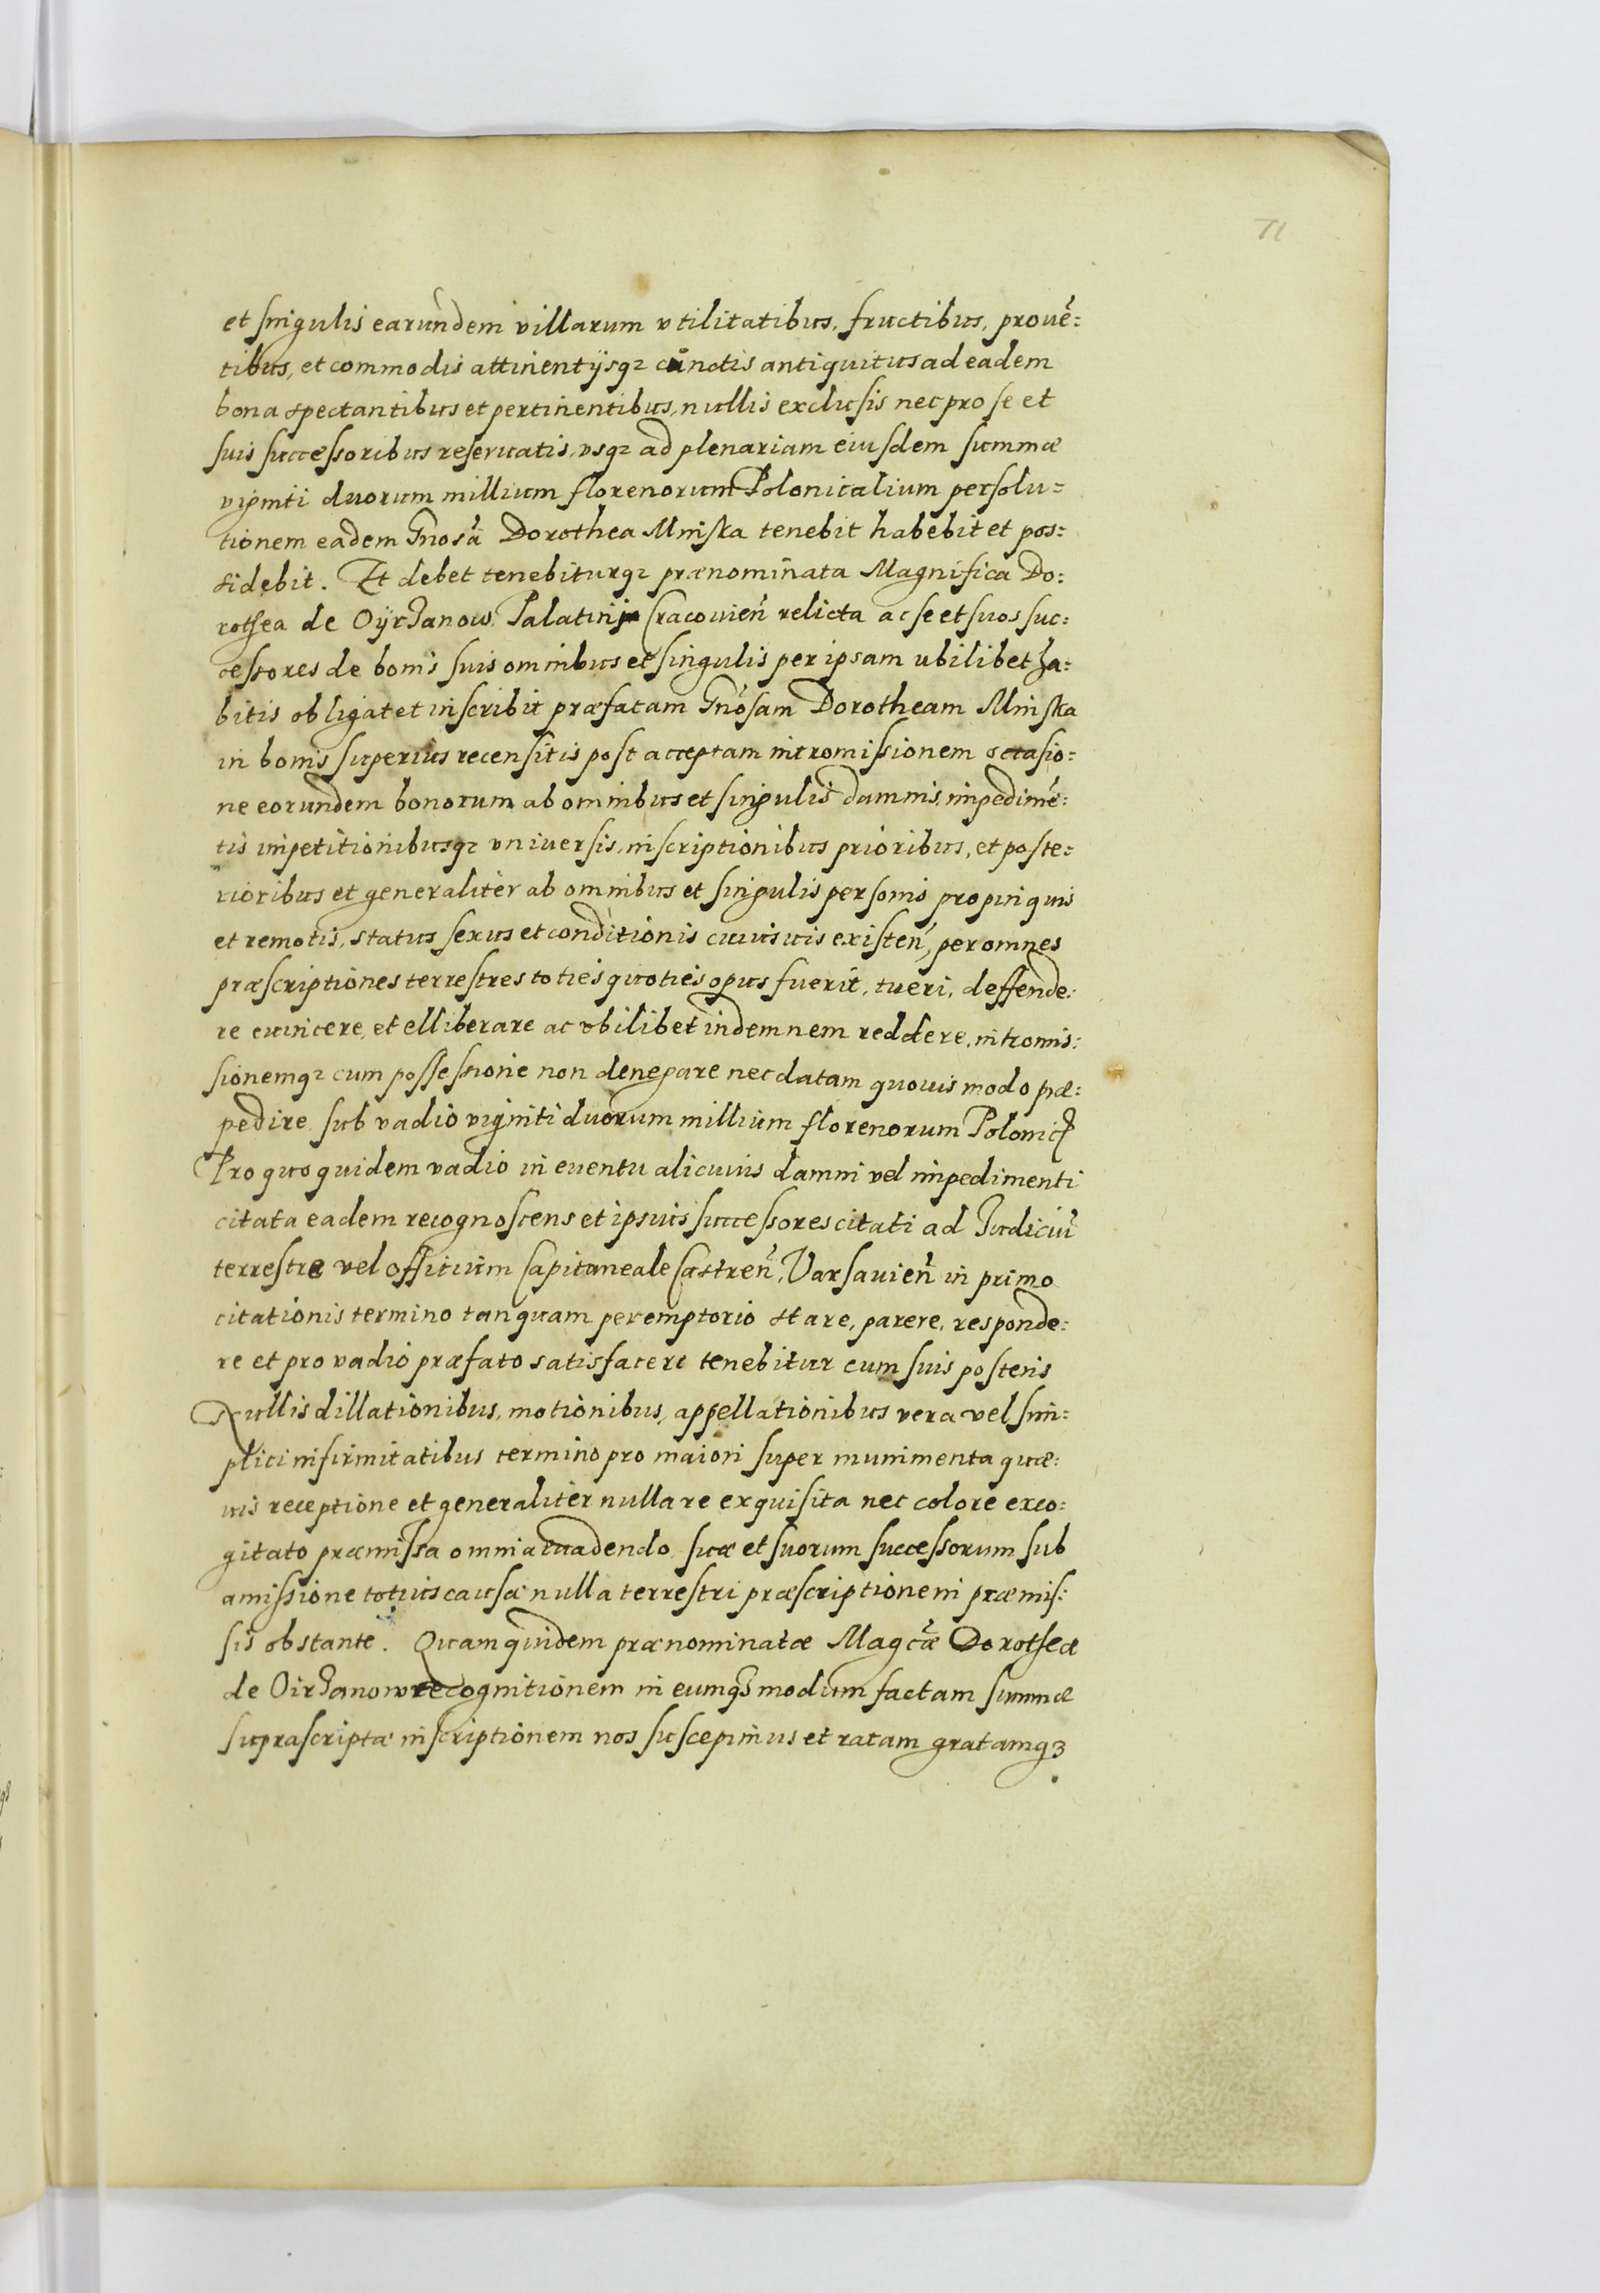 71
et singulis earundem villarum vtilitatibus, fructibus, prouē:
tibus, et commodis attinentijsq₃ cunctis antiquitus ad eadem
bona spectantibus et pertinentibus, nullis exclusis nec pro se et
suis successoribus reseruatis, vsq₃ ad plenariam eiusdem summæ
viginti duorum millium florenorum Polonicalium persolu=
tionem eadem Gnosa Dorothea Mniska tenebit habebit et pos:
sidebit. Et debet tenebiturq₃ prænominata Magnifica Do:
rothea de Oyrzanow Palatini Cracouień relicta ac se et suos suc:
cessores de bonis suis omnibus et singulis per ipsam ubilibet ha:
bitis obligat et inscribit præfatam Gnosam Dorotheam Mniska
in bonis superius recensitis post acceptam intromissionem occasio:
ne eorundem bonorum ab omnibus et singulis damnis, impedimē:
tis impetitionibusq₃ vniuersis, inscriptionibus prioribus, et poste:
rioribus et generaliter ab omnibus et singulis personis propinquis
et remotis, status sexus et conditionis cuiusuis existeń, per omnes
præscriptiones terrestres toties quoties opus fuerit, tueri, deffende:
re euincere, et elliberare ac vbilibet indemnem reddere, intromis:
sionemq₃ cum possessione non denegare nec datam quouis modo præ:
pedire sub vadio viginti duorum millium florenorum Polonic
Pro quo quidem vadio in euentu alicuius damni vel impedimenti
citata eadem recognoscens et ipsius successores citati ad Iudiciū
terrestre vel officium Capitaneale Castreń, Varsauień in primo
citationis termino tanquam peremptorio stare, parere, responde:
re et pro vadio præfato satisfacere tenebitur cum suis posteris
Nullis dillationibus, motionibus, appellationibus vera vel sim:
plici infirmitatibus termino pro maiori super munimenta quæ:
uis receptione et generaliter nulla re exquisita nec colore exco:
gitato præmissa omnia euadendo suæ et suorum successorum sub
amissione totius causæ nulla terrestri præscriptione in præmis:
sis obstante. Quam quidem prænominatæ Magcæ Dorotheæ
de Oirzanow recognitionem in eumq₃ modum factam summæ
suprascriptæ inscriptionem nos suscepimus et ratam gratamq₃